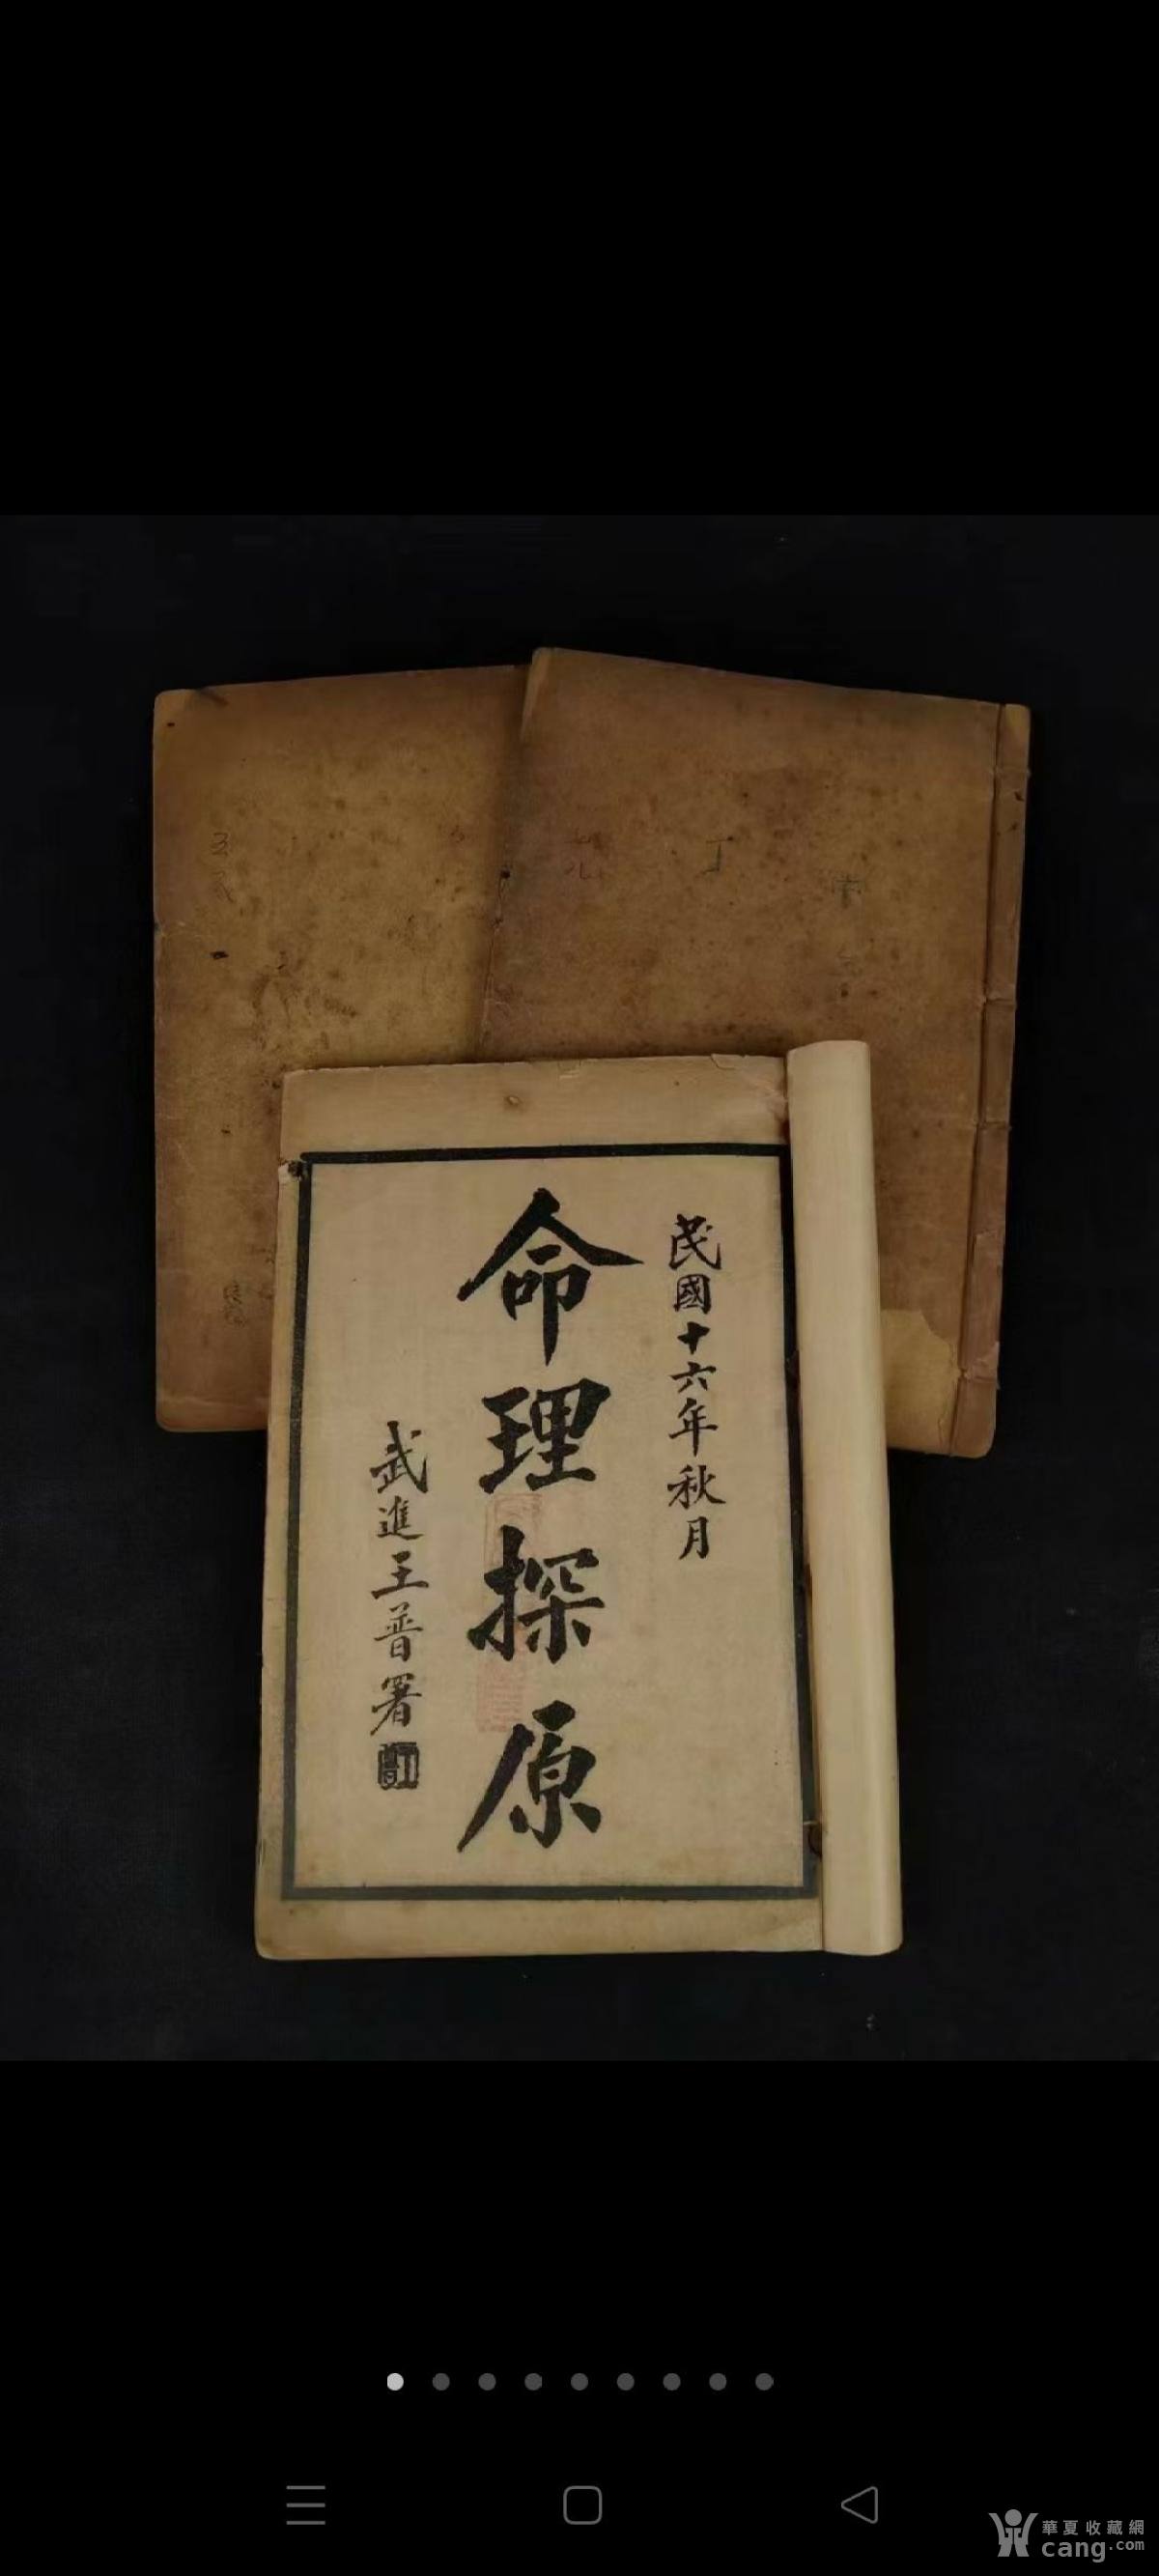 民國十六年秋月
命理探原
武進王普署
丁
華夏收藏網
cang.com